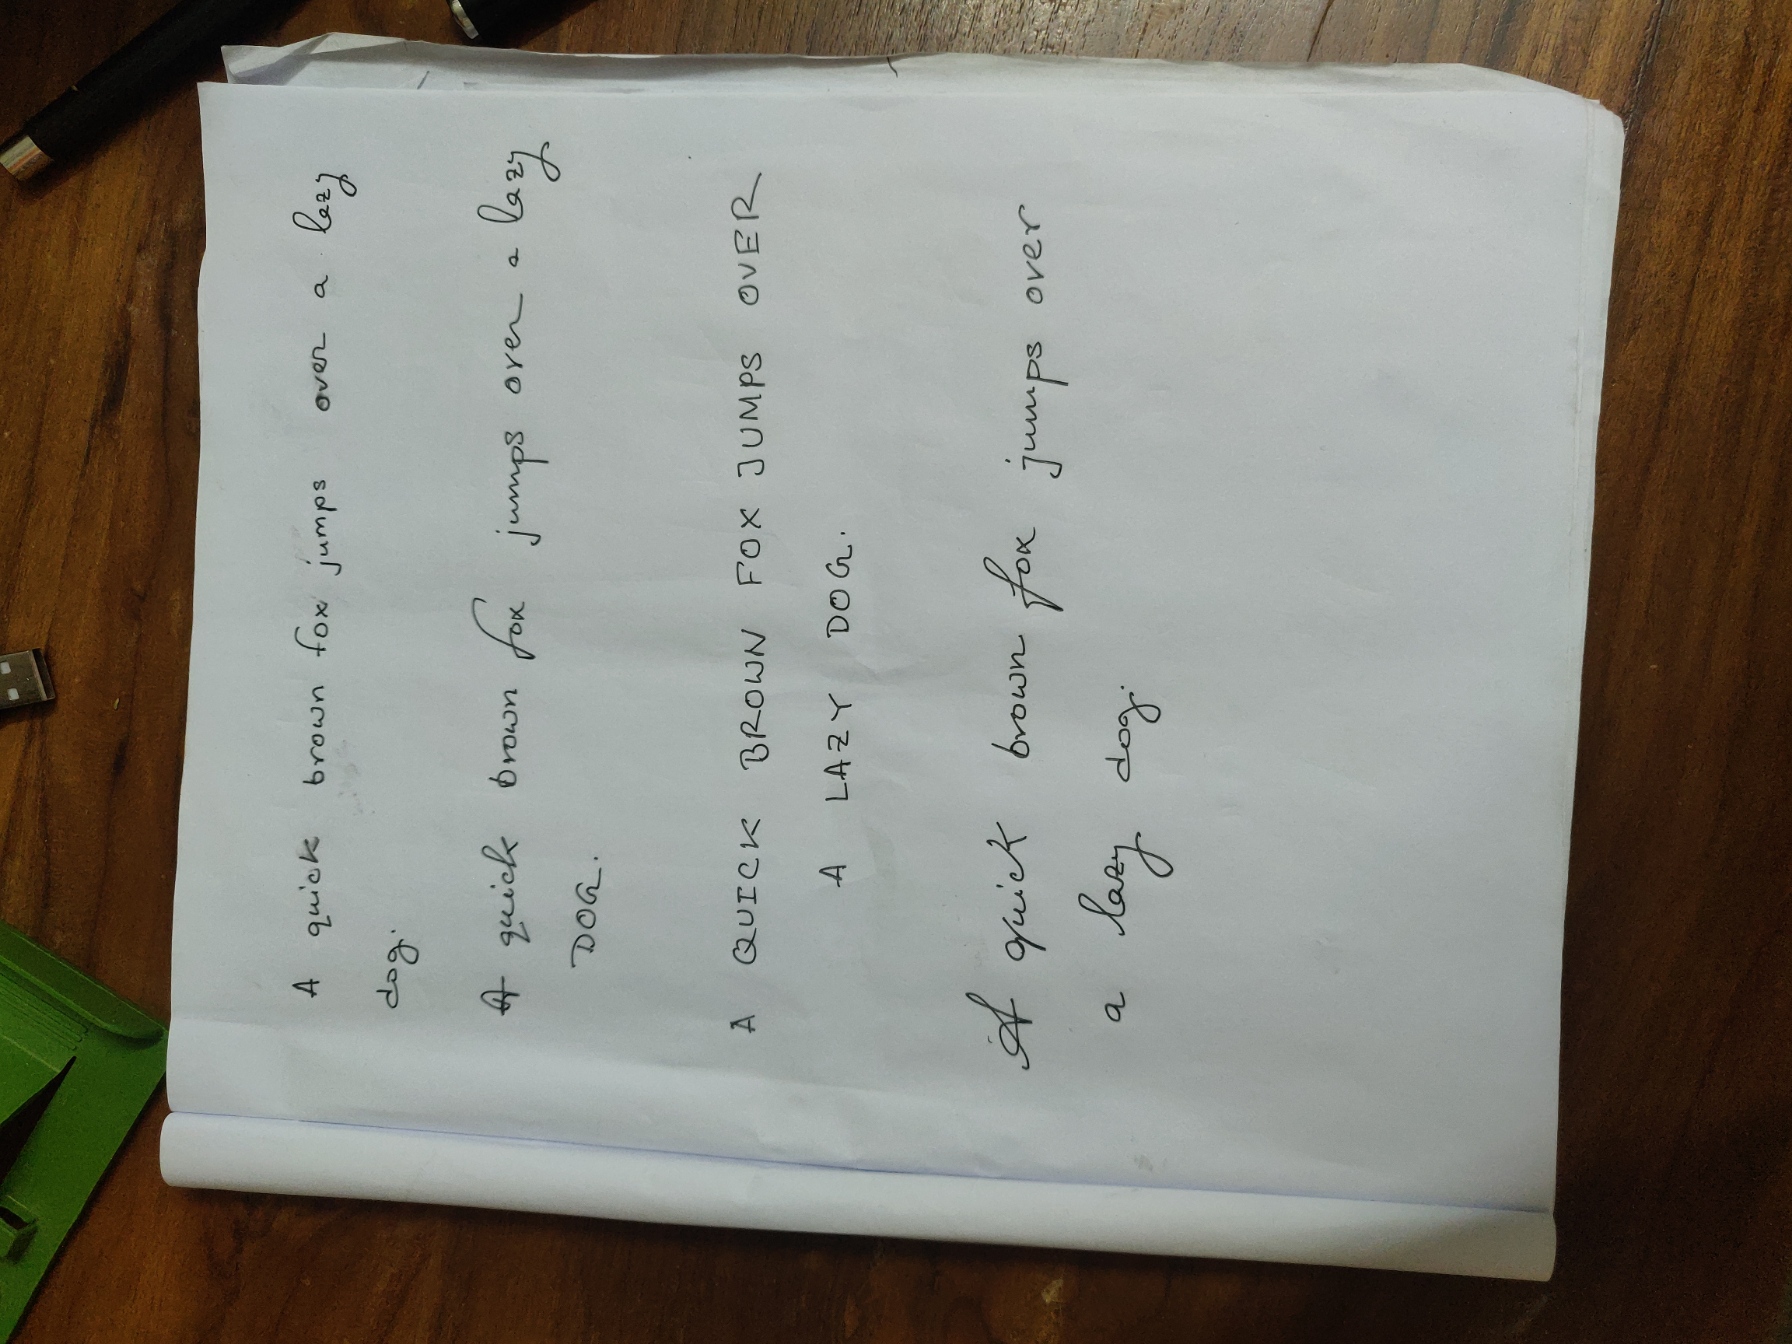 A quick brown fox jumps over a lazy
dog.
A quick brown fox jumps over a lazy
DOG.
A QUICK BROWN FOX JUMPS OVER
A LAZY DOG.
A quick brown fox jumps over
a lazy dog.